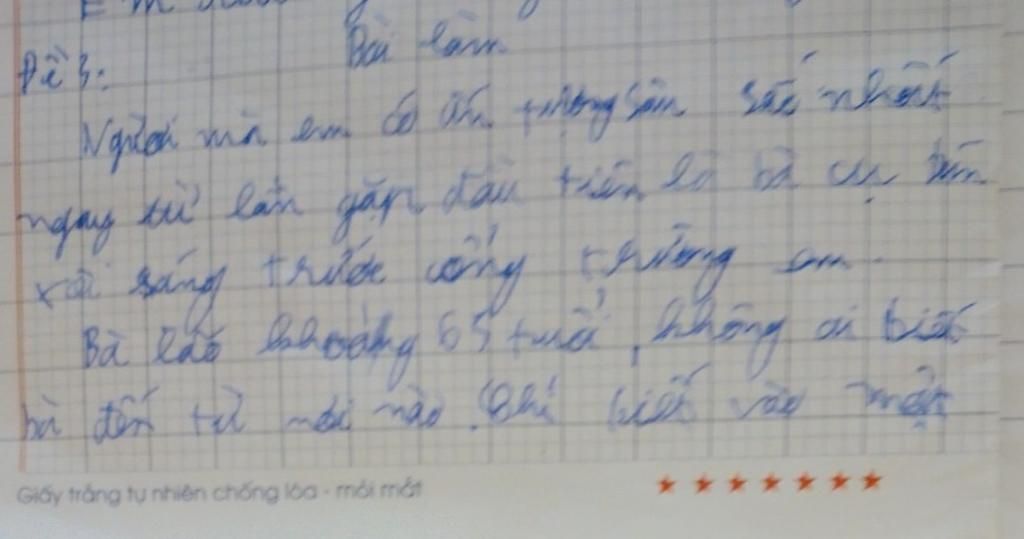 Em
Đề 3:
Bài làm
Người mà em có ấn tượng sâu sắc nhất
ngay từ lần gặp đầu tiên là bà cụ bán
xôi sáng trước cổng trường em.
Bà lão khoảng 65 tuổi, không ai biết
bà đến từ nơi nào. Chỉ biết vào một
Giấy trắng tự nhiên chống lóa - mỏi mắt